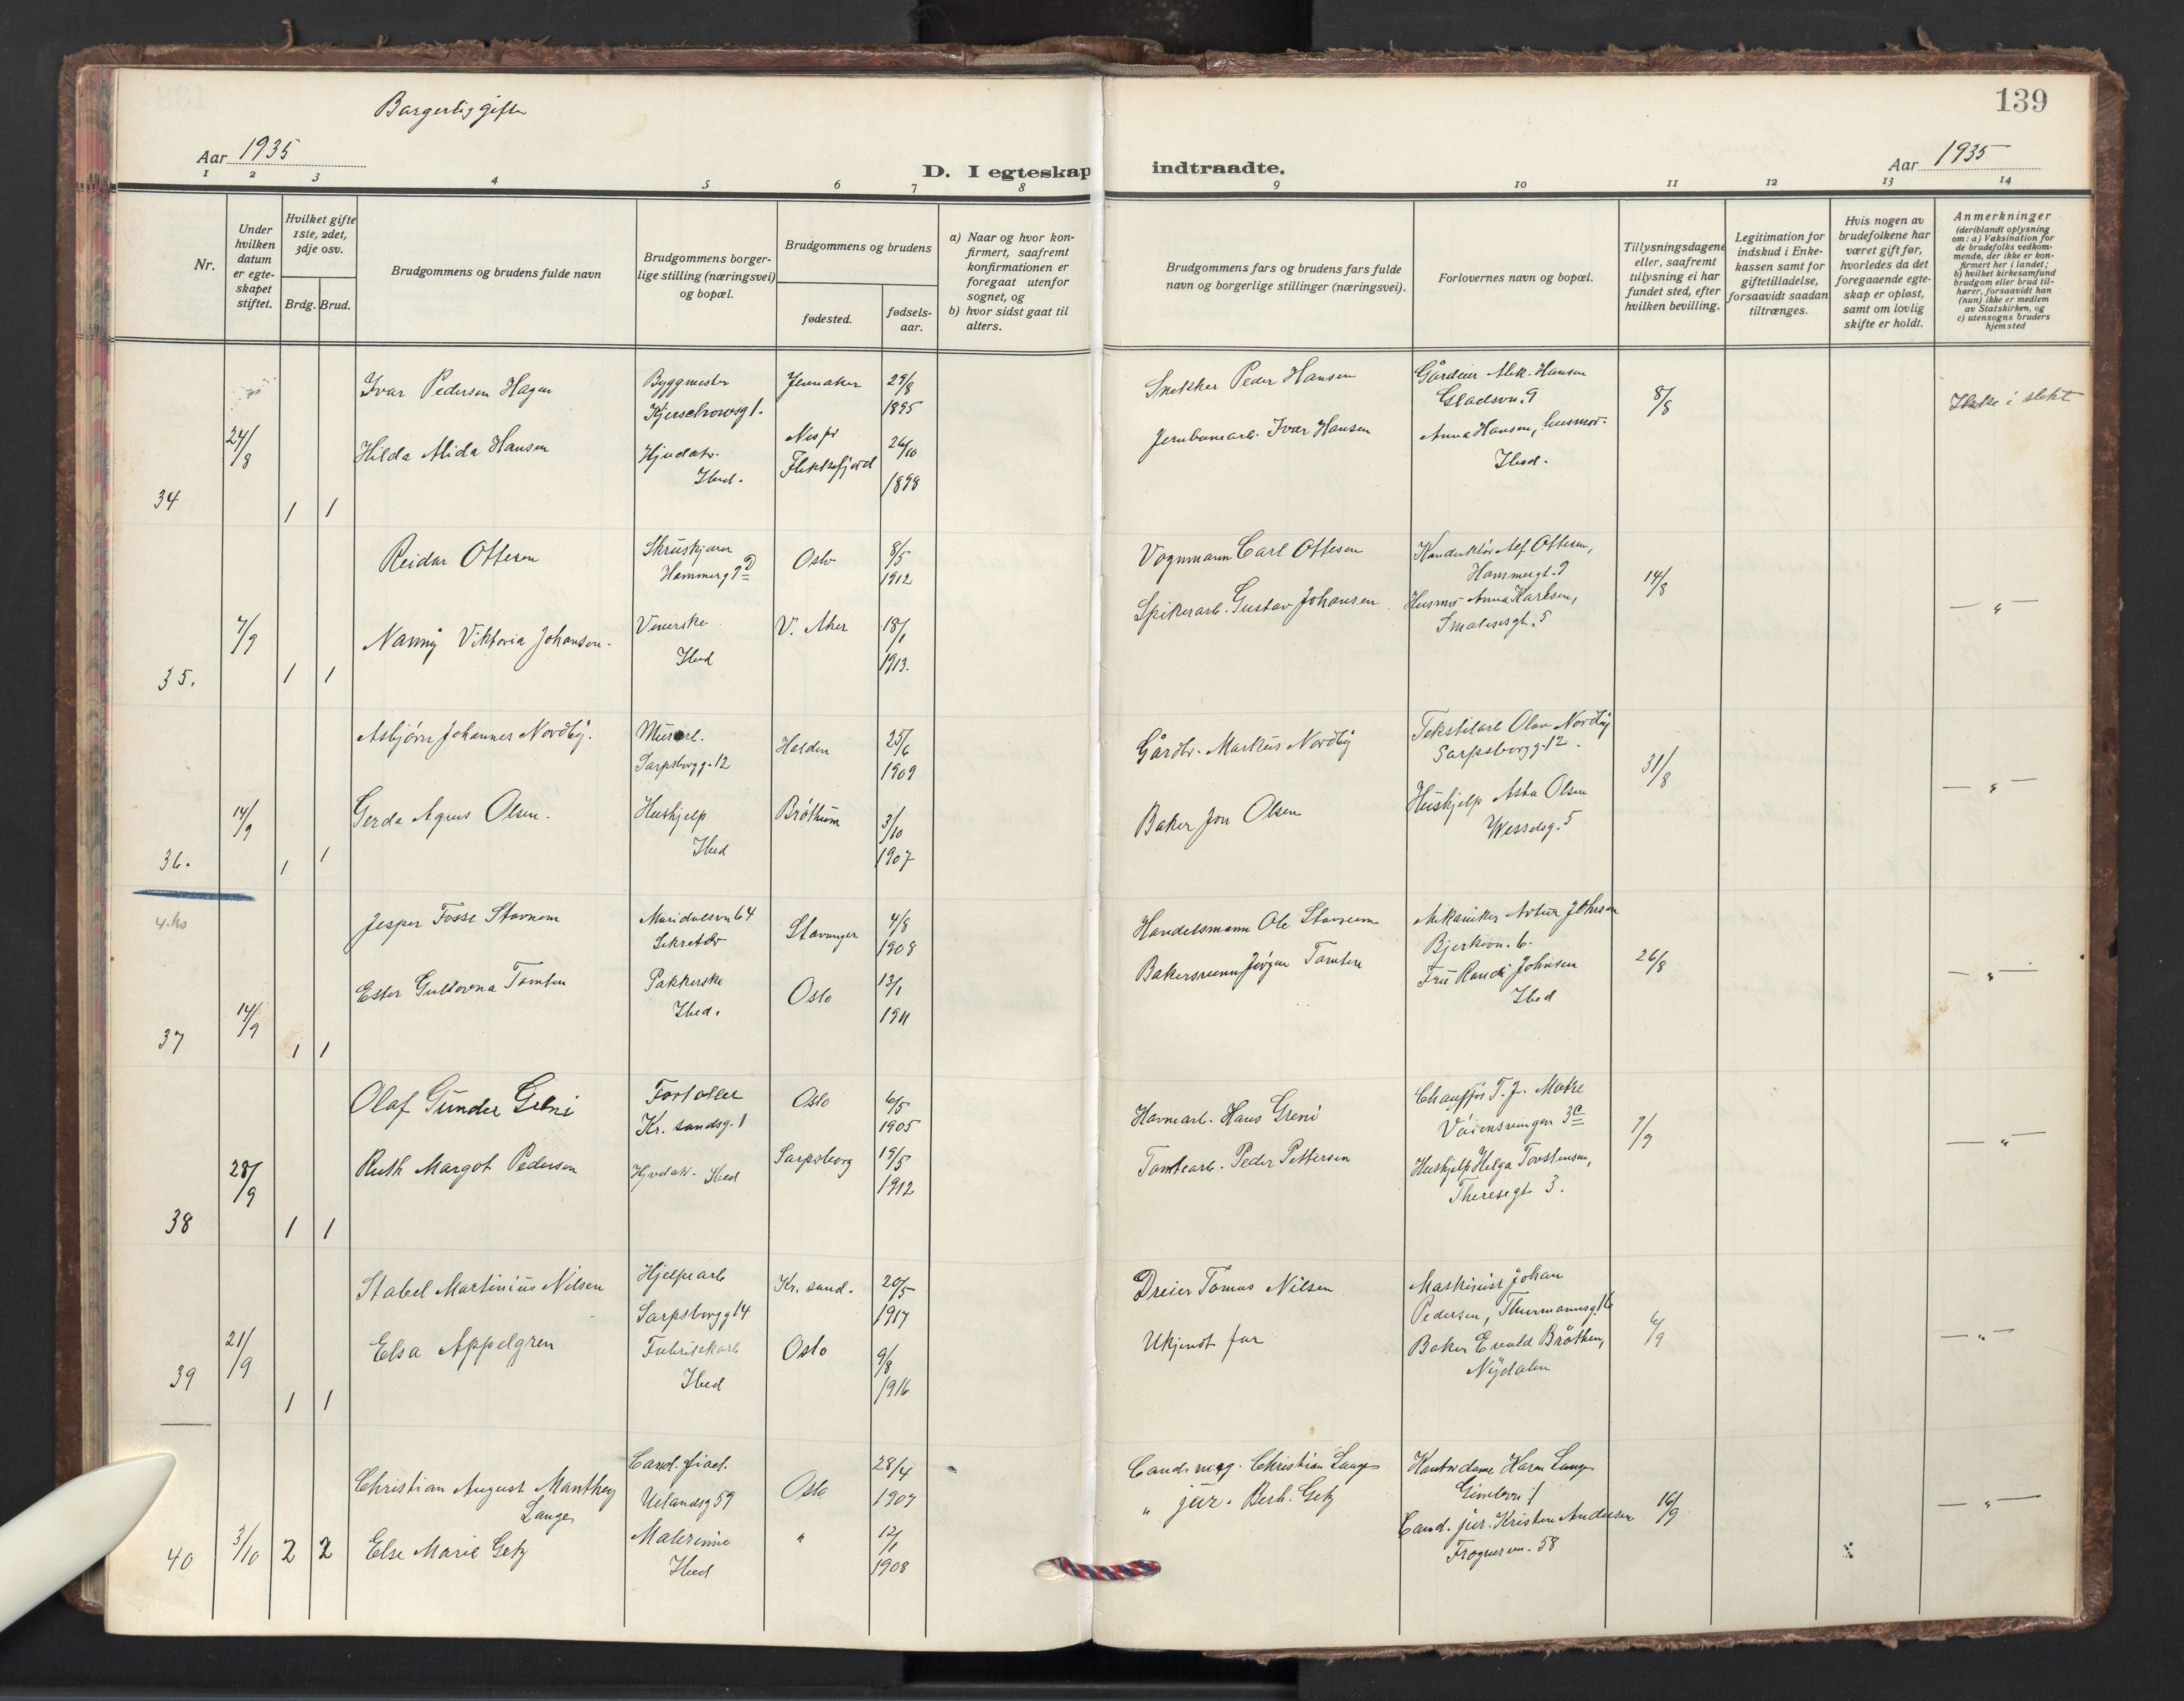 Borgerlig gifte
139
Aar 1935
D. I egteskap indtraadte.
Aar 1935
1 2 3 4 5 6 7 8 9 10 11 12 13 14
Nr.
Under hvilken datum er egteskapet stiftet.
Hvilket gifte 1ste, 2det, 3dje osv.
Brdg. Brud.
Brudgommens og brudens fulde navn
Brudgommens borgerlige stilling (næringsvei) og bopæl.
Brudgommens og brudens
fødested.
fødselsaar.
a) Naar og hvor konfirmert, saafremt konfirmationen er foregaat utenfor sognet, og
b) hvor sidst gaat til alters.
Brudgommens fars og brudens fars fulde navn og borgerlige stillinger (næringsvei).
Forlovernes navn og bopæl.
Tillysningsdagene eller, saafremt tillysning ei har fundet sted, efter hvilken bevilling.
Legitimation for indskud i Enkekassen samt for giftetilladelse, forsaavidt saadan tiltrænges.
Hvis nogen av brudefolkene har været gift før, hvorledes da det foregaaende egteskap er opløst, samt om lovlig skifte er holdt.
Anmerkninger (deriblandt oplysning om: a) Vaksination for de brudefolks vedkommende, der ikke er konfirmert her i landet; b) hvilket kirkesamfund brudgom eller brud tilhører, forsaavidt han (hun) ikke er medlem av Statskirken, og c) utensogns bruders hjemsted
34
24/8
1 1
Ivar Pedersen Hagen
Byggmester
Kjerschowsg 1.
Jevnaker
29/8 1895
Snekker Peder Hansen
Gårdeier Alek. Hansen
Gladsvn. 9
8/8
Ikke i slekt
Hilda Alida Hansen
Ibid.
Flekkefjord
26/10 1898
Jernbanearb. Ivar Hansen
Anna Hansen, husmor.
Ibid.
35.
7/9
1 1
Reidar Ottesen
Hammerg 9 D
Oslo
8/5 1912
Vognmann Carl Ottesen
Konduktør Alf Ottesen,
Hammergt. 9
14/8
— " —
Nanny Viktoria Johansen.
Veverske
Ibid
V. Aker
18/1 1913.
Spikerarb. Gustav Johansen
Husmor Anna Karlsen,
36.
14/9
1 1
Asbjørn Johannes Nordby.
Murarb.
Sarpsborgg. 12
Halden
25/6 1909
Gårdbr. Markus Nordby
Tekstilarb Olav Nordby
Sarpsborgg. 12.
31/8
— " —
Gerda Agnes Olsen.
Hushjelp
Ibid
Brøttum
3/10 1907
Baker Jon Olsen
Hushjelp Asta Olsen
Wesselsg. 5
37
14/9
1 1
Jesper Fosse Stavnem
Maridalsvn 64
Sekretær
Stavanger
4/8 1908
Handelsmann Ole Stavnem
Mekaniker Artur Johnsen
Bjerkevn. 6.
26/8
— " —
Ester Gultorna Tomten
Pakkerske
Ibid.
Oslo
13/1 1911
Bakersvenn Jørgen Tomten
Fru Randi Johnsen
Ibid
38
28/9
1 1
Olaf Gunder Greni
Kr. sandsg. 1
Oslo
6/5 1905
Havnearb. Hans Greni
Chauffør T. J. Moke
9/9
— " —
Ruth Margot Pedersen
Ibid
Sarpsborg
19/5 1912
Tomtearb. Peder Pettersen
Hushjelp Helga Torstensen,
Theresegt 3.
39
21/9
1 1
Stabel Martinius Nilsen
Hjelpearb
Sarpsborgg 14
Kr. sand.
20/5 1917
Dreier Tomas Nilsen
Maskinist Johan
Pedersen, Thurmannsg. 16
6/9
— " —
Elsa Appelgren
Fabrikkarb
Ibid
Oslo
9/8 1916
Ukjendt far
Baker Evald Bråthen,
Nydalen
40
3/10
2 2
Christian August Manthey
Lange
Cand. filol.
Uelandsg 59
Oslo
28/4 1907
Cand. mag. Christian Lange
Kontordame Karen Lange
16/9
— " —
Else Marie Getz
Malerinne
Ibid
"
12/1 1908
" jur. Bernh. Getz
Cand. jur. Kristen Andersen
Frognervn. 58